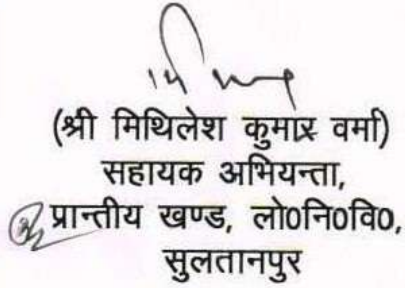 (श्री मिथिलेश कुमार वर्मा)
सहायक अभियन्ता,
प्रान्तीय खण्ड, लो0नि0वि0,
सुलतानपुर